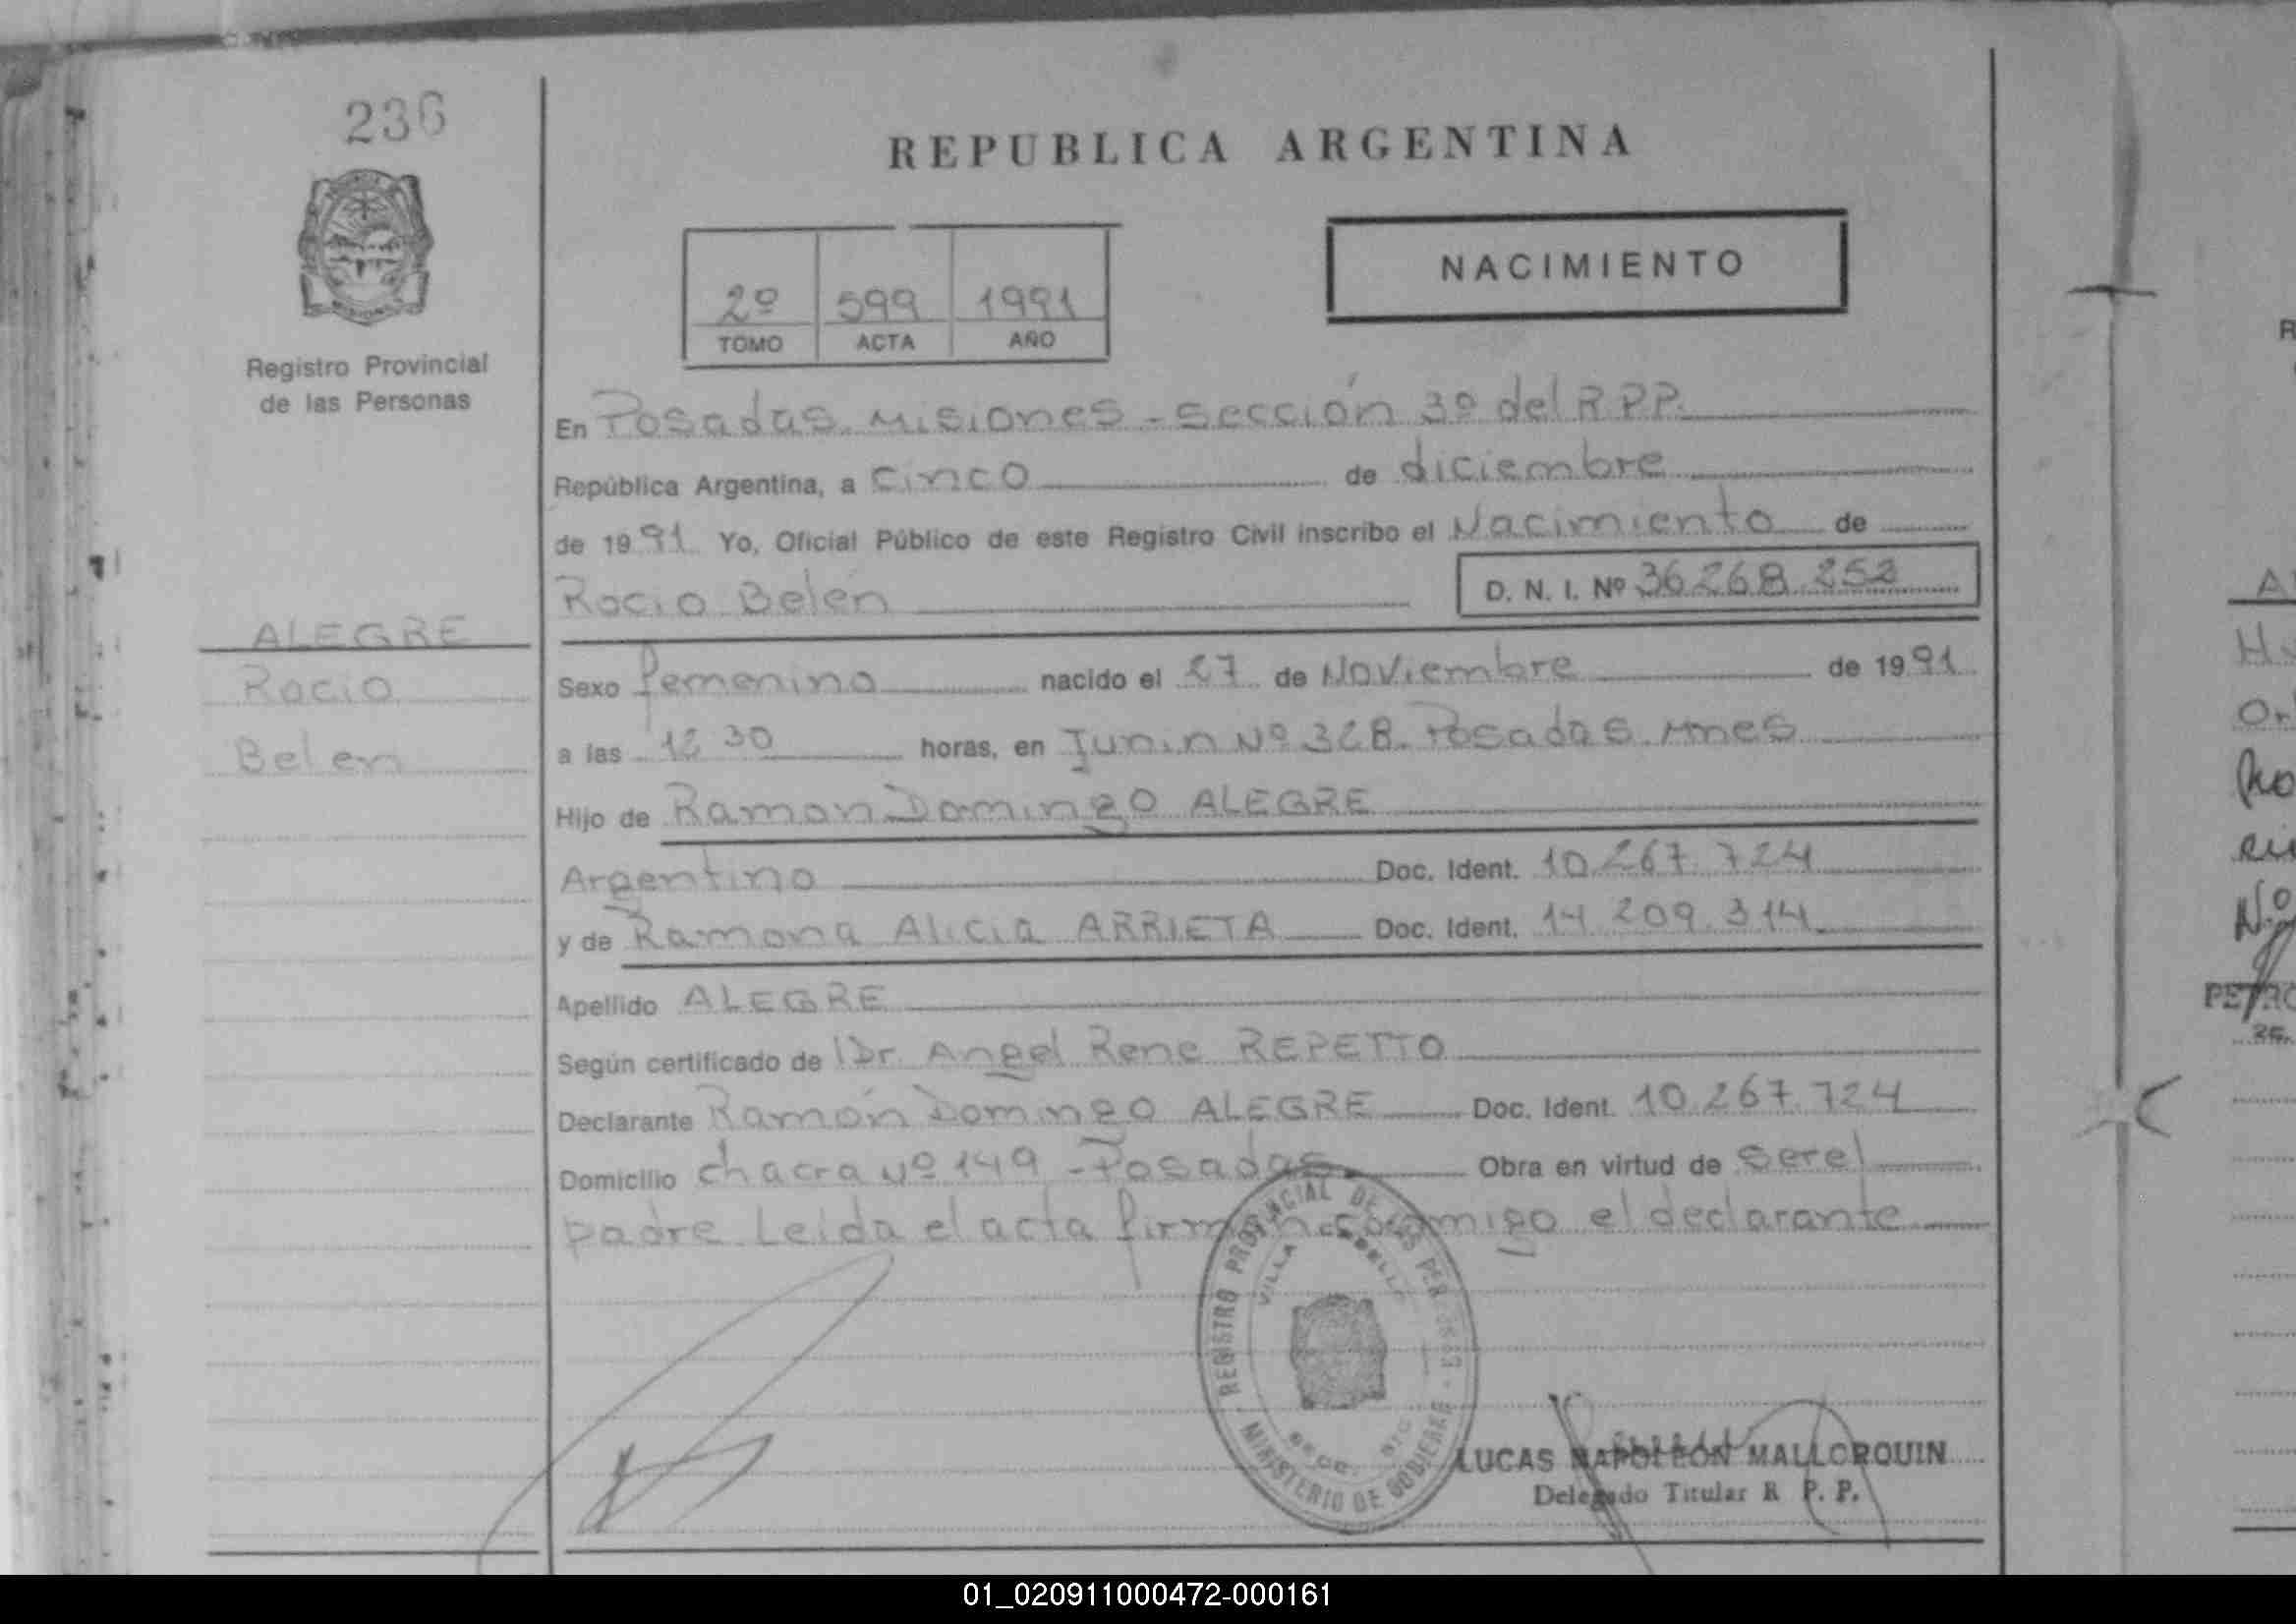 236
REPUBLICA ARGENTINA
Registro Provincial
de las Personas
2º 599 1991
TOMO ACTA AÑO
NACIMIENTO
En Posadas. Misiones - Sección 3º del R.P.P.
República Argentina, a Cinco de diciembre
de 1991 Yo, Oficial Público de este Registro Civil inscribo el Nacimiento de
Rocio Belen D. N. I. Nº 36.268.252
ALEGRE
Rocio
Belen
Sexo femenino nacido el 27 de Noviembre de 1991
a las 12 30 horas, en Junin Nº 328. Posadas. Mnes
Hijo de Ramon Domingo ALEGRE
Argentino Doc. Ident. 10.267.724
y de Ramona Alicia ARRIETA Doc. Ident. 14.209.314
Apellido ALEGRE
Según certificado de Dr. Angel Rene REPETTO
Declarante Ramón Domingo ALEGRE Doc. Ident. 10.267.724
Domicilio chacra Nº 149 - Posadas Obra en virtud de ser el
padre Leida el acta firman conmigo el declarante
REGISTRO PROVINCIAL DE LAS PER
VILLA
MINISTERIO DE GOBIERNO
LUCAS NAPOLEÓN MALLORQUIN
Delegado Titular R P. P.
01_020911000472-000161